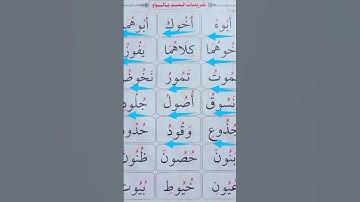 تمرينات المد بالواو
أَبُوهُمَا أَخُوكَ أَبُوهُ
يَفُوزُ كِلَاهُمَا خُوهُمَا
نَخُوضُ تَمُورُ
جُلُود أُصُولُ نَسُوقُ
حُدُو وَقُودُ جُذُوعِ
ظُنُونَ حُصُونَ بَنُونَ
بُيُوتَ خُيُوطِ عُيُونِ